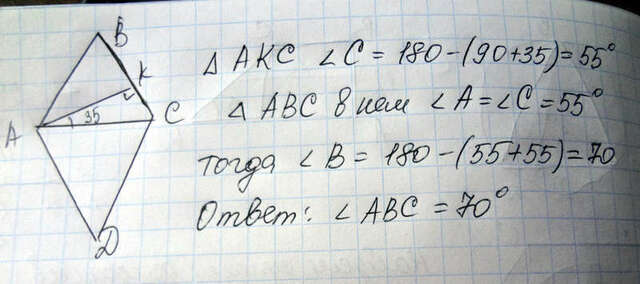 B
K
35
C
A
D
△ AKC ∠C = 180-(90+35)=55°
△ ABC в нем ∠A=∠C=55°
тогда ∠B = 180-(55+55)=70
Ответ: ∠ABC = 70°